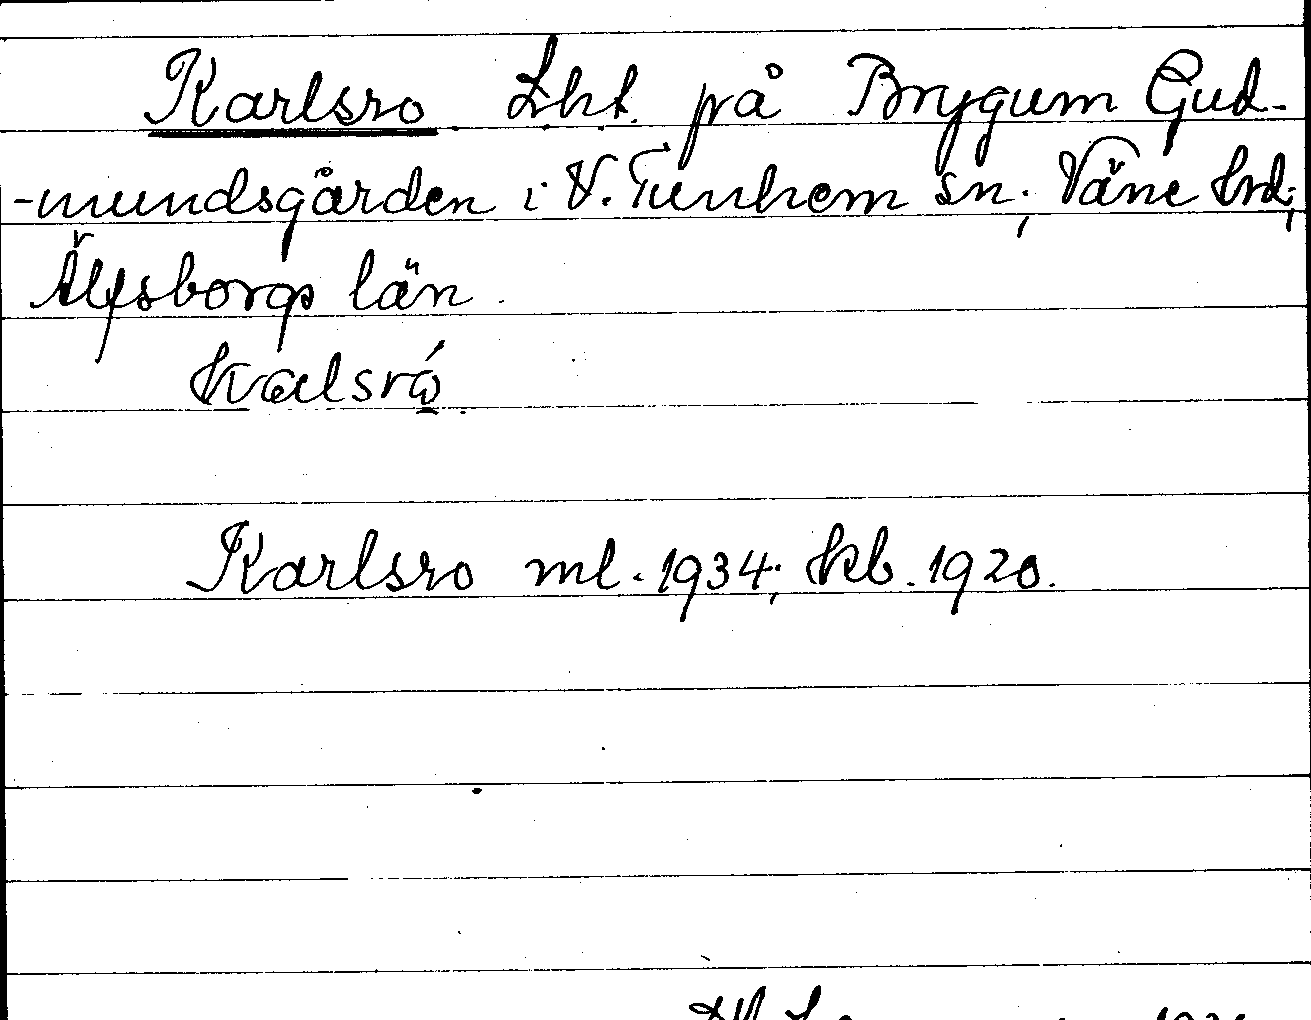 Karlsro Lht. på Brygum Gud-
-mundsgården i V. Tunhem sn; Väne hd;
Älfsborgs län.
kalsró
Karlsro ml. 1934; kb. 1920.